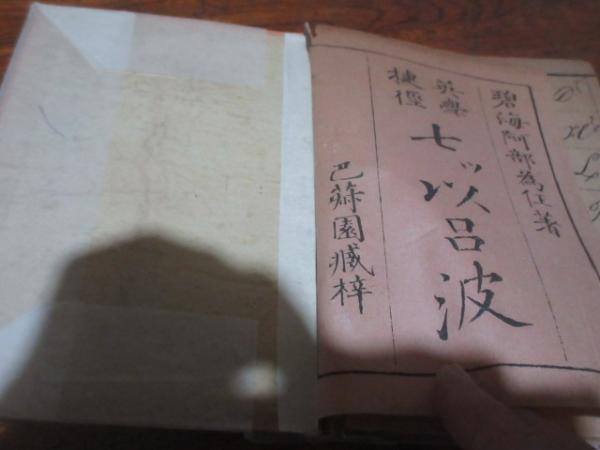 碧海阿部為任著
英學捷徑
七ツ以呂波
巴蒒園臧梓